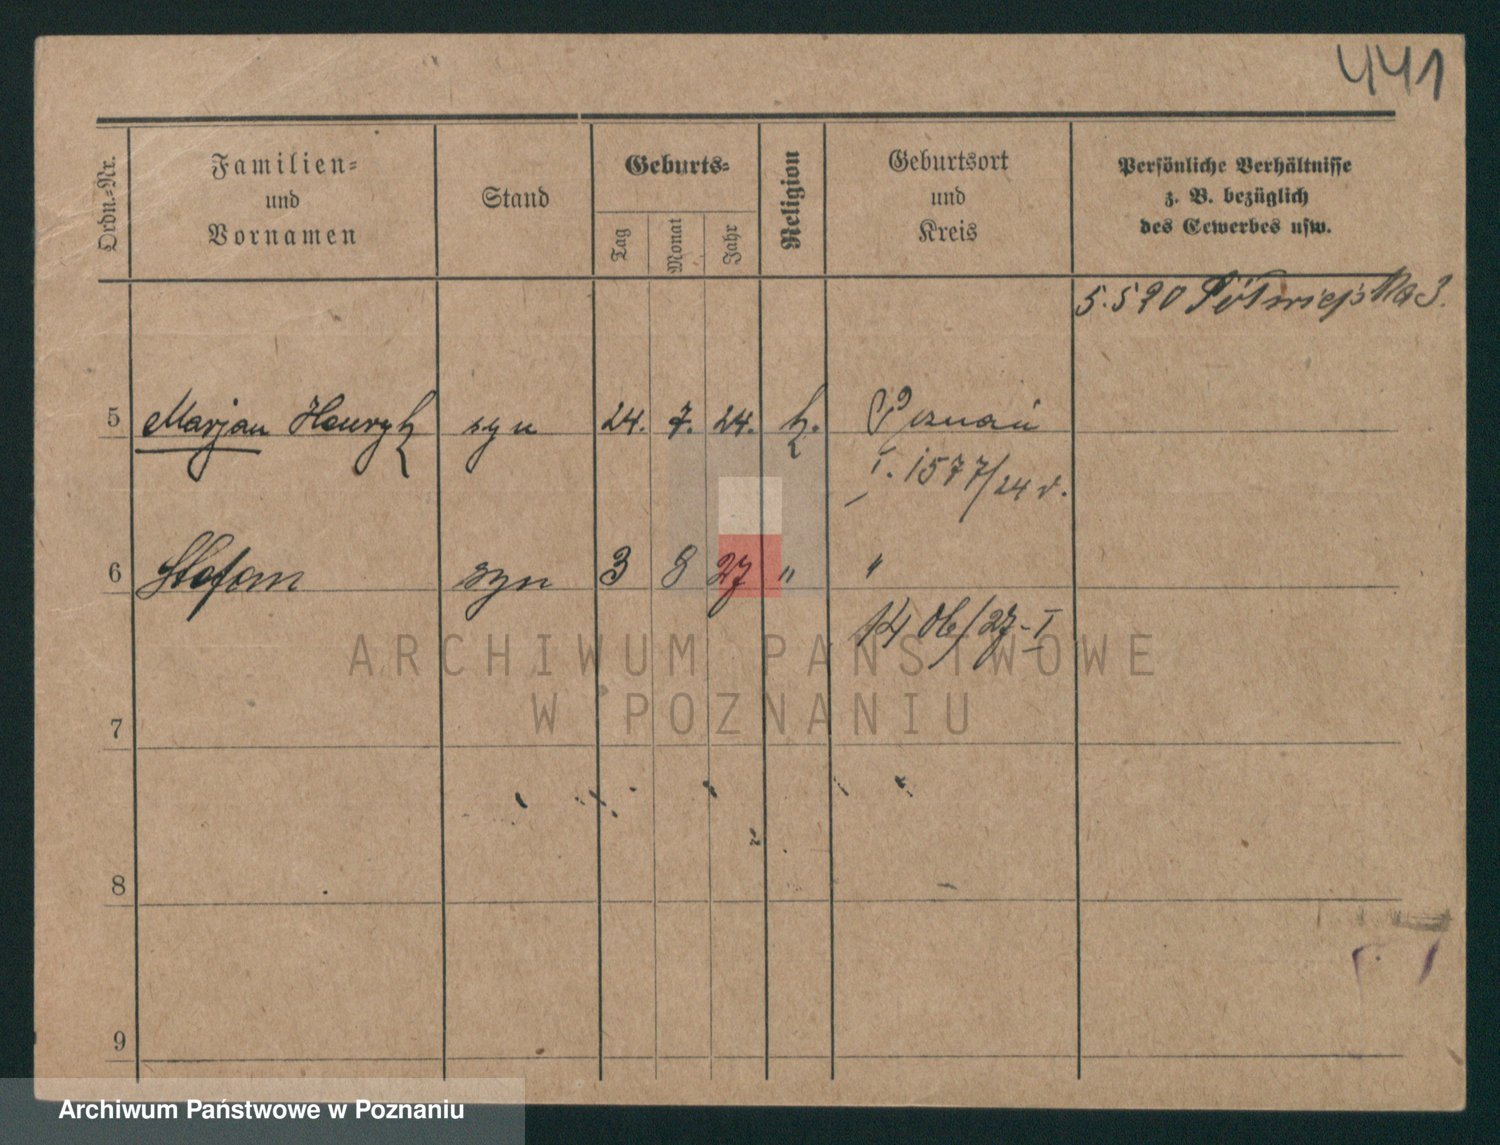 441
Ordn.-Nr.
Familien-
und
Vornamen
Stand
Geburts-
Tag
Monat
Jahr
Religion
Geburtsort
und
Kreis
Persönliche Verhältnisse
z. B. bezüglich
des Gewerbes usw.
5.5 90 Półwiejska 3.
5 Marjan Henryk syn 24. 7. 24. k. Poznań
I. 1577/24 r.
6 Stefan syn 3 8 27 " "
/27-I
ARCHIWUM PAŃSTWOWE
W POZNANIU
7
8
9
Archiwum Państwowe w Poznaniu